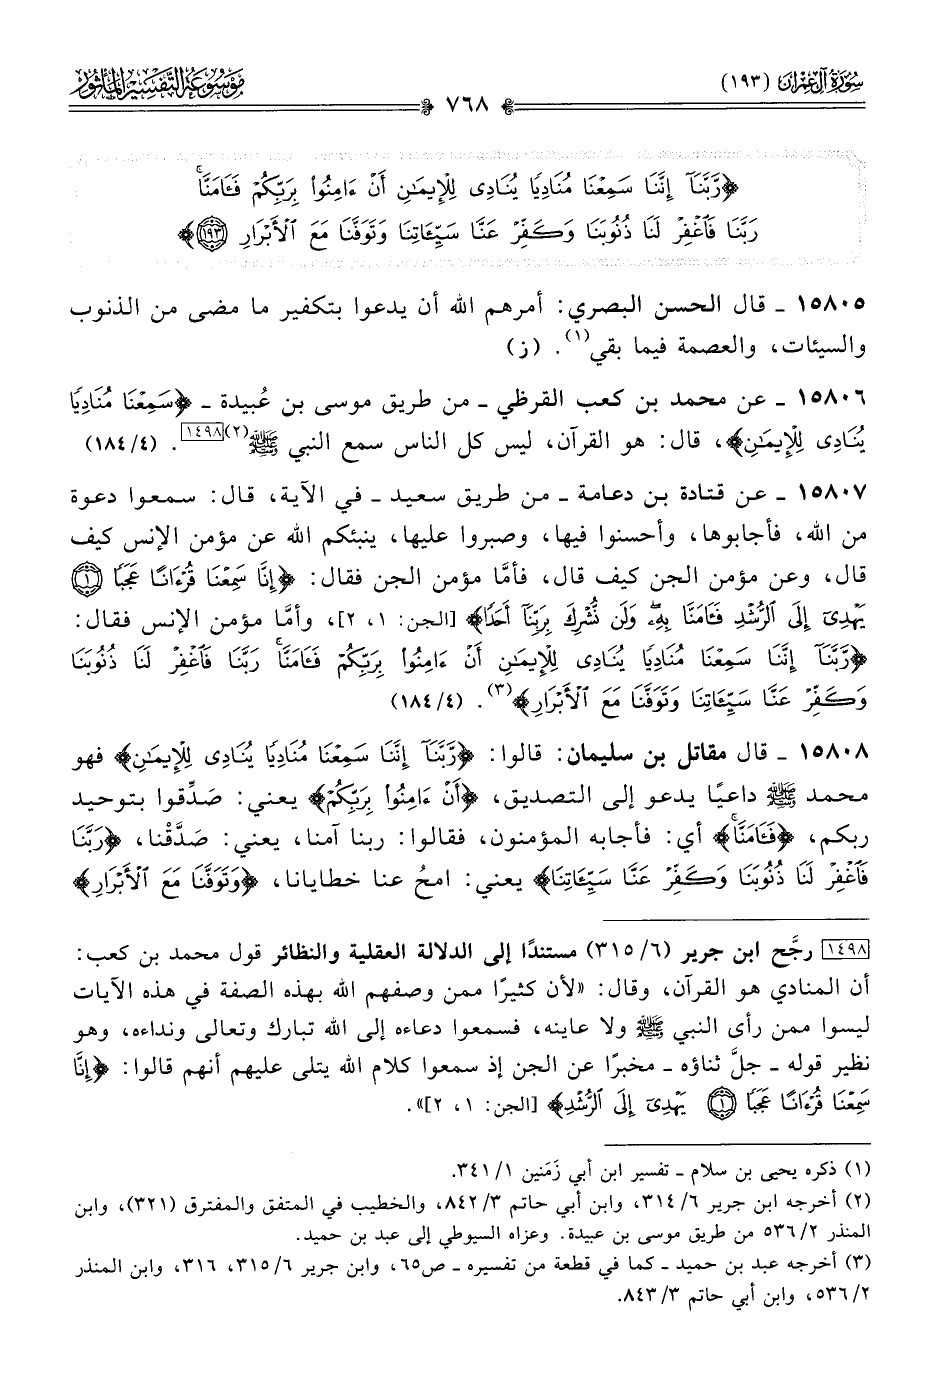 سُورَةُ آلِ عِمْرَانَ (١٩٣)
٧٦٨
مَوْسُوعَةُ التَّفْسِيرِ المَأْثُورِ
﴿رَّبَّنَآ إِنَّنَا سَمِعْنَا مُنَادِيًا يُنَادِى لِلْإِيمَٰنِ أَنْ ءَامِنُوا۟ بِرَبِّكُمْ فَـَٔامَنَّا ۚ
رَبَّنَا فَٱغْفِرْ لَنَا ذُنُوبَنَا وَكَفِّرْ عَنَّا سَيِّـَٔاتِنَا وَتَوَفَّنَا مَعَ ٱلْأَبْرَارِ ۝١٩٣﴾
١٥٨٠٥ ـ قال الحسن البصري: أمرهم الله أن يدعوا بتكفير ما مضى من الذنوب
والسيئات، والعصمة فيما بقي(١). (ز)
١٥٨٠٦ ـ عن محمد بن كعب القرظي ـ من طريق موسى بن عُبيدة ـ ﴿سَمِعْنَا مُنَادِيًا
يُنَادِى لِلْإِيمَٰنِ﴾، قال: هو القرآن، ليس كل الناس سمع النبي ﷺ(٢)[١٤٩٨]. (٤/ ١٨٤)
١٥٨٠٧ ـ عن قتادة بن دعامة ـ من طريق سعيد ـ في الآية، قال: سمعوا دعوة
من الله، فأجابوها، وأحسنوا فيها، وصبروا عليها، ينبئكم الله عن مؤمن الإنس كيف
قال، وعن مؤمن الجن كيف قال، فأمَّا مؤمن الجن فقال: ﴿إِنَّا سَمِعْنَا قُرْءَانًا عَجَبًا ۝١
يَهْدِىٓ إِلَى ٱلرُّشْدِ فَـَٔامَنَّا بِهِۦ ۖ وَلَن نُّشْرِكَ بِرَبِّنَآ أَحَدًا﴾ [الجن: ١، ٢]، وأمَّا مؤمن الإنس فقال:
﴿رَّبَّنَآ إِنَّنَا سَمِعْنَا مُنَادِيًا يُنَادِى لِلْإِيمَٰنِ أَنْ ءَامِنُوا۟ بِرَبِّكُمْ فَـَٔامَنَّا ۚ رَبَّنَا فَٱغْفِرْ لَنَا ذُنُوبَنَا
وَكَفِّرْ عَنَّا سَيِّـَٔاتِنَا وَتَوَفَّنَا مَعَ ٱلْأَبْرَارِ﴾(٣). (٤/ ١٨٤)
١٥٨٠٨ ـ قال مقاتل بن سليمان: قالوا: ﴿رَّبَّنَآ إِنَّنَا سَمِعْنَا مُنَادِيًا يُنَادِى لِلْإِيمَٰنِ﴾ فهو
محمد ﷺ داعيًا يدعو إلى التصديق، ﴿أَنْ ءَامِنُوا۟ بِرَبِّكُمْ﴾ يعني: صَدِّقوا بتوحيد
ربكم، ﴿فَـَٔامَنَّا ۚ﴾ أي: فأجابه المؤمنون، فقالوا: ربنا آمنا، يعني: صَدَّقْنا، ﴿رَبَّنَا
فَٱغْفِرْ لَنَا ذُنُوبَنَا وَكَفِّرْ عَنَّا سَيِّـَٔاتِنَا﴾ يعني: امحُ عنا خطايانا، ﴿وَتَوَفَّنَا مَعَ ٱلْأَبْرَارِ﴾
[١٤٩٨] رجَّح ابن جرير (٦/ ٣١٥) مستندًا إلى الدلالة العقلية والنظائر قول محمد بن كعب:
أن المنادي هو القرآن، وقال: «لأن كثيرًا ممن وصفهم الله بهذه الصفة في هذه الآيات
ليسوا ممن رأى النبي ﷺ ولا عاينه، فسمعوا دعاءه إلى الله تبارك وتعالى ونداءه، وهو
نظير قوله ـ جلَّ ثناؤه ـ مخبرًا عن الجن إذ سمعوا كلام الله يتلى عليهم أنهم قالوا: ﴿إِنَّا
سَمِعْنَا قُرْءَانًا عَجَبًا ۝١ يَهْدِىٓ إِلَى ٱلرُّشْدِ﴾ [الجن: ١، ٢]».
(١) ذكره يحيى بن سلام ـ تفسير ابن أبي زَمَنين ١/ ٣٤١.
(٢) أخرجه ابن جرير ٦/ ٣١٤، وابن أبي حاتم ٣/ ٨٤٢، والخطيب في المتفق والمفترق (٣٢١)، وابن
المنذر ٢/ ٥٣٦ من طريق موسى بن عبيدة. وعزاه السيوطي إلى عبد بن حميد.
(٣) أخرجه عبد بن حميد ـ كما في قطعة من تفسيره ـ ص٦٥، وابن جرير ٦/ ٣١٥، ٣١٦، وابن المنذر
٢/ ٥٣٦، وابن أبي حاتم ٣/ ٨٤٣.